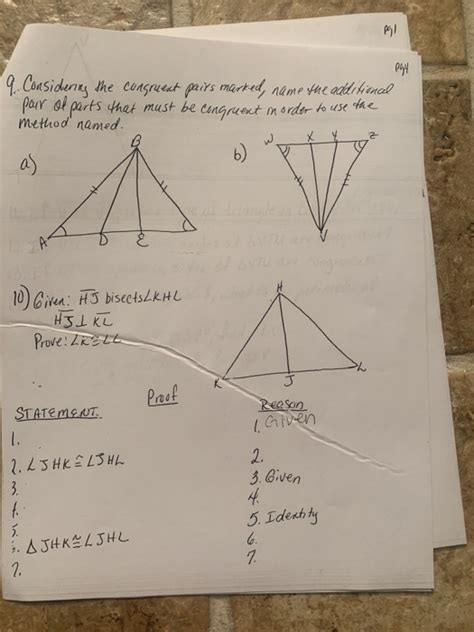 Pg1
Pg4
9. Considering the congruent pairs marked, name the additional
pair of parts that must be congruent in order to use the
method named.
a)
B
A
D
E
b)
W
X
Y
Z
V
10) Given: HJ bisects∠KHL
HJ ⊥ KL
Prove: ∠K≅∠L
H
K
J
L
Proof
STATEMENT
Reason
1.
1. Given
2. ∠JHK≅∠JHL
2.
3.
3. Given
4.
4.
5.
5. Identity
6. ΔJHK≅∠JHL
6.
7.
7.